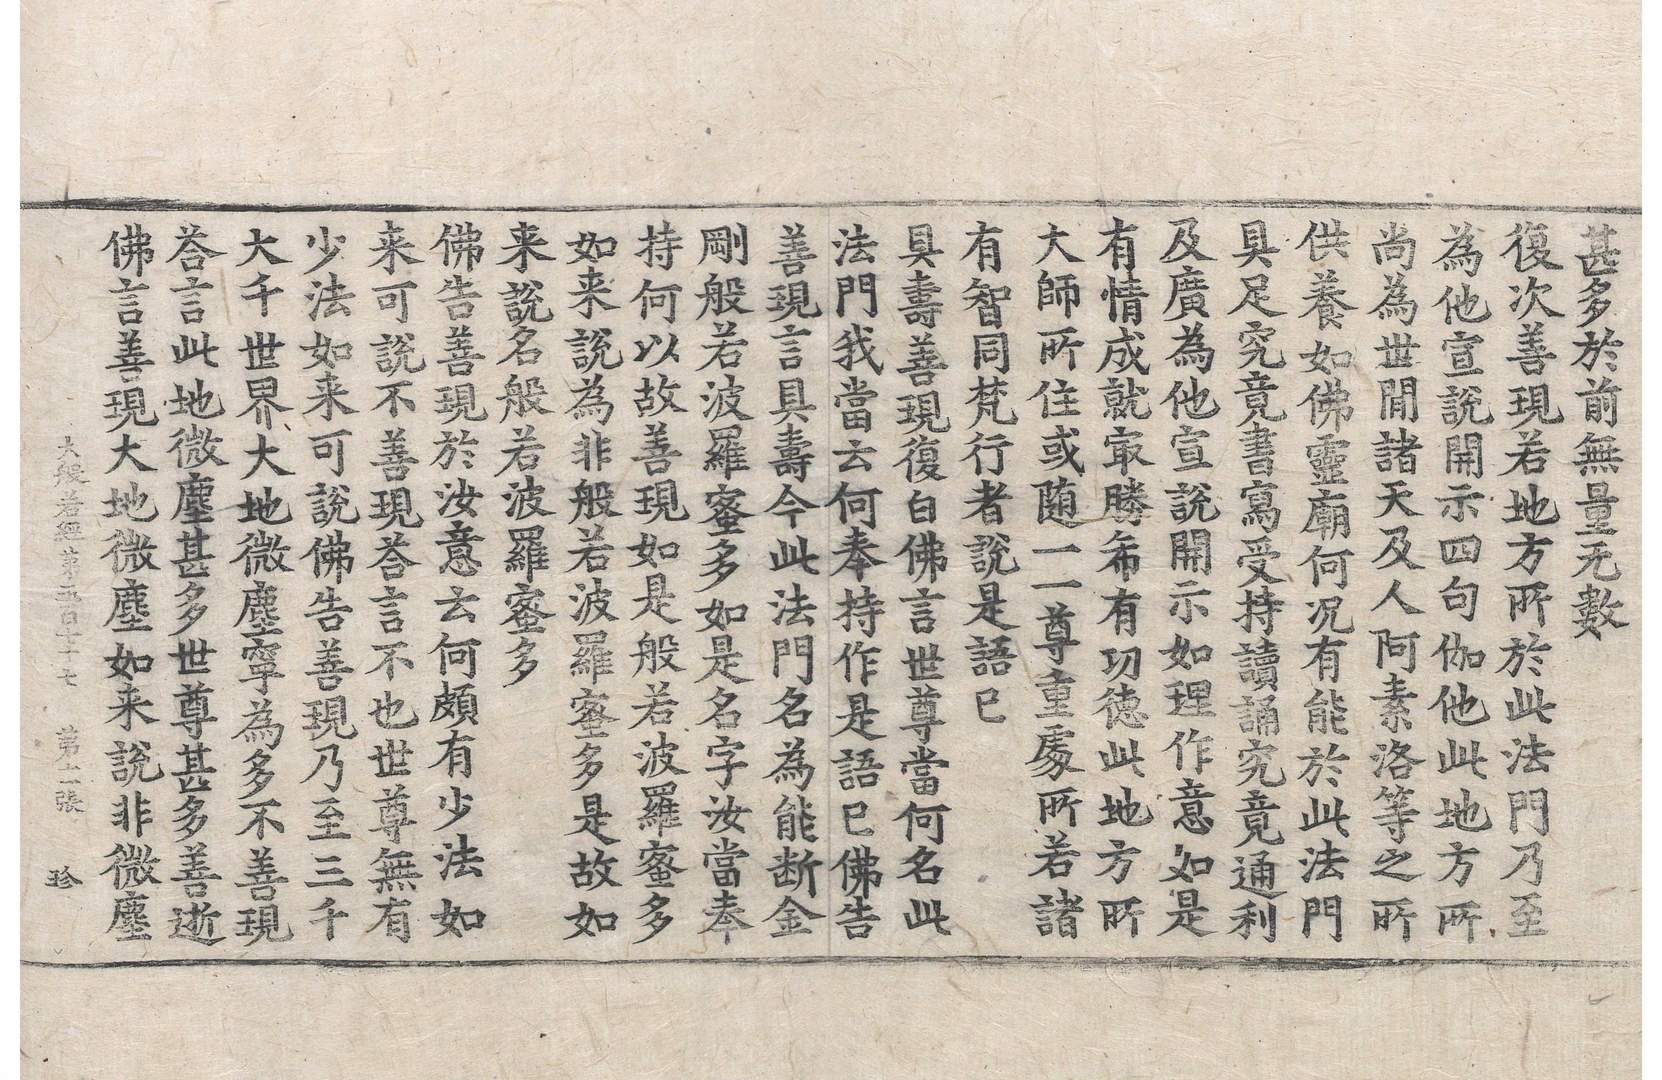 甚多於前無量无數
復次善現若地方所於此法門乃至
為他宣說開示四句伽他此地方所
尚為世閒諸天及人阿素洛等之所
供養如佛靈廟何況有能於此法門
具足究竟書寫受持讀誦究竟通利
及廣為他宣說開示如理作意如是
有情成就㝡勝希有功德此地方所
大師所住或隨一一尊重處所若諸
有智同梵行者說是語已
具壽善現復白佛言世尊當何名此
法門我當云何奉持作是語已佛告
善現言具壽今此法門名為能斷金
剛般若波羅蜜多如是名字汝當奉
持何以故善現如是般若波羅蜜多
如来說為非般若波羅蜜多是故如
来說名般若波羅蜜多
佛告善現於汝意云何頗有少法如
来可說不善現荅言不也世尊無有
少法如来可說佛告善現乃至三千
大千世界大地微塵寧為多不善現
荅言此地微塵甚多世尊甚多善逝
佛言善現大地微塵如来說非微塵
大般若經第五百七十七 第十二張 珍